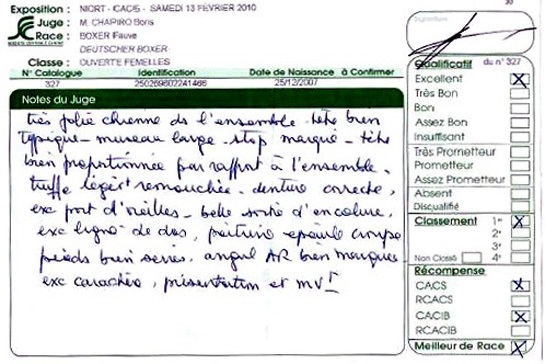 30
Exposition : NIORT - CACIB - SAMEDI 13 FÉVRIER 2010
Juge : M. CHAPIRO Boris
Race : BOXER Fauve
DEUTSCHER BOXER
Classe : OUVERTE FEMELLES
N° Catalogue Identification Date de Naissance à Confirmer
327 250269602241466 25/12/2007
Notes du Juge
très jolie chienne ds l'ensemble. tête bien
typique - museau large - stop marqué - tête
bien proportionnée par rapport à l'ensemble.
truffe légèrt remouchée. denture correcte,
exc port d'oreilles - belle sortie d'encolure,
exc ligne de dos, poitrine épaule croupe
pieds bien serrés, angul AR bien marquées
exc caractère, présentation et mvt
Signature
Qualificatif du n° 327
Excellent X
Très Bon
Bon
Assez Bon
Insuffisant
Très Prometteur
Prometteur
Assez Prometteur
Absent
Disqualifié
Classement 1er X
2e
3e
Non Classé 4e
Récompense
CACS X
RCACS
CACIB X
RCACIB
Meilleur de Race X